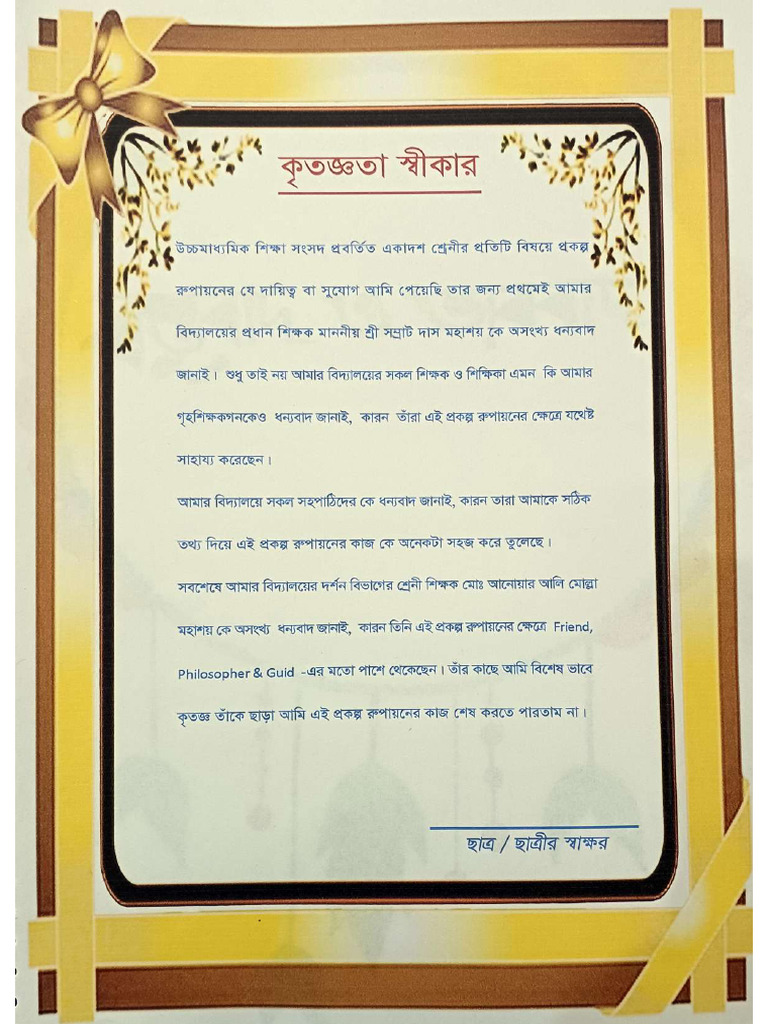 কৃতজ্ঞতা স্বীকার
উচ্চমাধ্যমিক শিক্ষা সংসদ প্রবর্তিত একাদশ শ্রেনীর প্রতিটি বিষয়ে প্রকল্প
রুপায়নের যে দায়িত্ব বা সুযোগ আমি পেয়েছি তার জন্য প্রথমেই আমার
বিদ্যালয়ের প্রধান শিক্ষক মাননীয় শ্রী সম্রাট দাস মহাশয় কে অসংখ্য ধন্যবাদ
জানাই। শুধু তাই নয় আমার বিদ্যালয়ের সকল শিক্ষক ও শিক্ষিকা এমন কি আমার
গৃহশিক্ষকগনকেও ধন্যবাদ জানাই, কারন তাঁরা এই প্রকল্প রুপায়নের ক্ষেত্রে যথেষ্ট
সাহায্য করেছেন।
আমার বিদ্যালয়ে সকল সহপাঠিদের কে ধন্যবাদ জানাই, কারন তারা আমাকে সঠিক
তথ্য দিয়ে এই প্রকল্প রুপায়নের কাজ কে অনেকটা সহজ করে তুলেছে।
সবশেষে আমার বিদ্যালয়ের দর্শন বিভাগের শ্রেনী শিক্ষক মোঃ আনোয়ার আলি মোল্লা
মহাশয় কে অসংখ্য ধন্যবাদ জানাই, কারন তিনি এই প্রকল্প রুপায়নের ক্ষেত্রে Friend,
Philosopher & Guid -এর মতো পাশে থেকেছেন। তাঁর কাছে আমি বিশেষ ভাবে
কৃতজ্ঞ তাঁকে ছাড়া আমি এই প্রকল্প রুপায়নের কাজ শেষ করতে পারতাম না।
ছাত্র / ছাত্রীর স্বাক্ষর